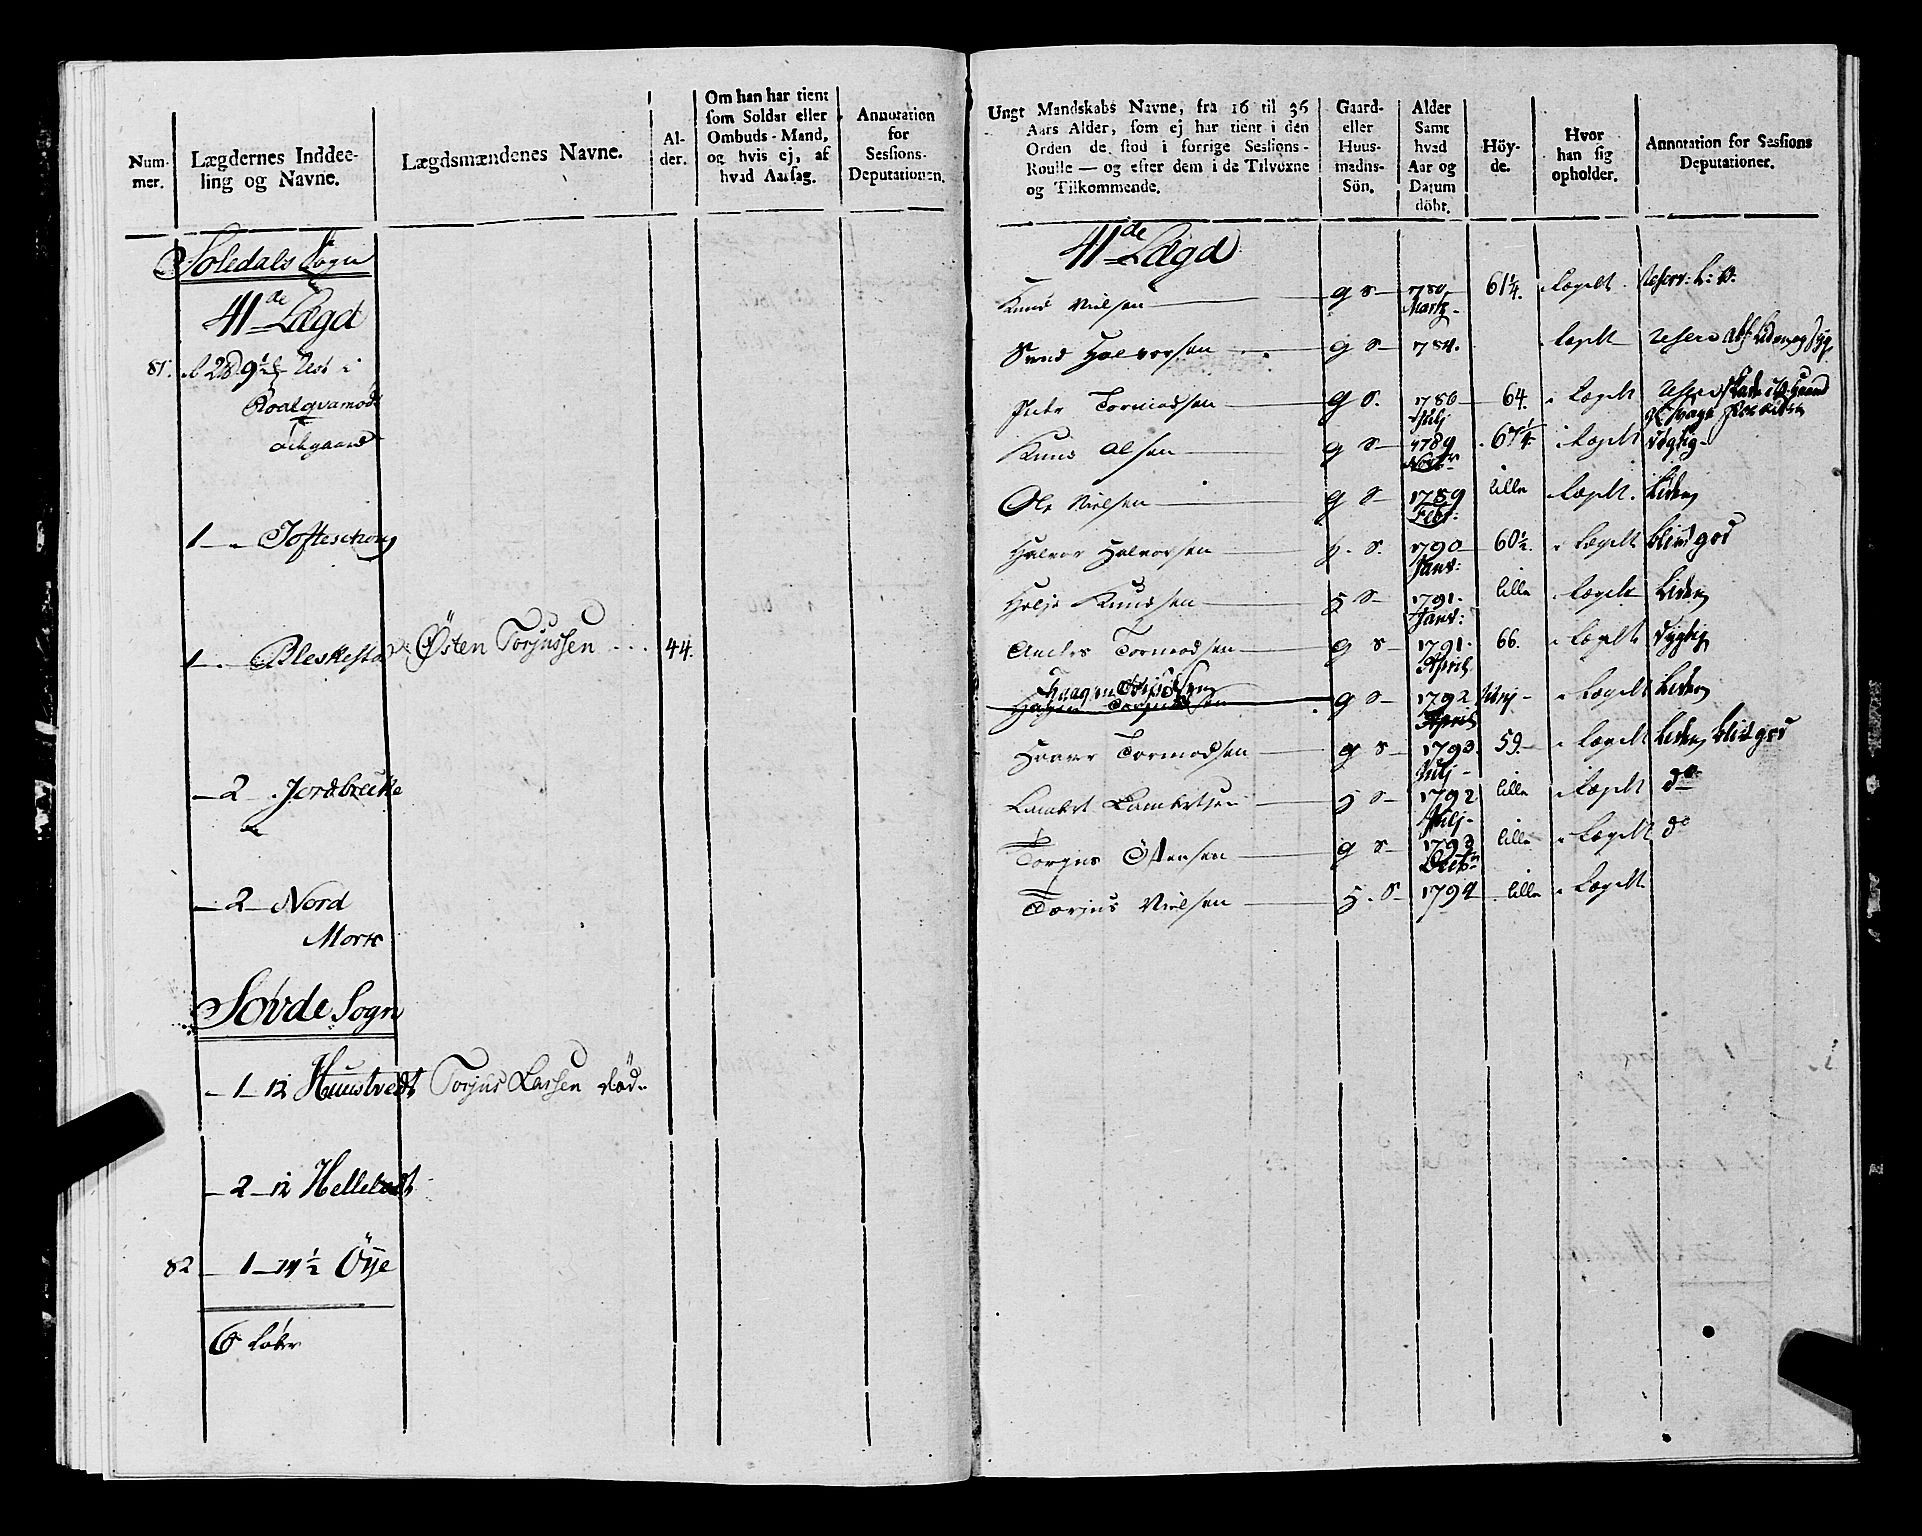 Num-
mer.
Lægdernes Inddee-
ling og Navne.
Lægdsmændenes Navne.
Al-
der.
Om han har tient
som Soldat eller
Ombuds-Mand,
og hvis ej, af
hvad Aarsag.
Annotation
for
Sessions-
Deputationen.
Soledals Sogn
41de Lægd
81.
1 Tofteschou
1 Bleskestad Østen Torjussen 44.
2 Jordbrecke
2 Nord
Mork
Søvde Sogn
1 12 Huustvedt Torjus Larsen død
2 12
82 1 1/2 Øye
6 Løber
Ungt Mandskabs Navne, fra 16 til 36
Aars Alder, som ej har tient i den
Orden de stod i forrige Sessions-
Roulle — og efter dem i de Tilvoxne
og Tilkommende.
Gaard-
eller
Huus-
mands-
Sön.
Alder
Samt
hvad
Aar og
Datum
döbt.
Höy-
de.
Hvor
han sig
opholder.
Annotation for Sessions
Deputationer.
41de Lægd
Knud Nielsen g S 1780 Martz 61 1/4. i Lægdt
Svend Halvorsen g S 784. Lægdt
Peder Tormodsen g S. 1786 Julj 64. i Lægdt
Knud Olsen g S 1789 Novbr 67 1/4. i Lægdt dygtig
Ole Nielsen g S 1789 Febr: lille i Lægdt. Liden
Halvor Halvorsen h. S. 1790 Janv: 60 1/2. i Lægdt
Helje Knudsen h S 1791. Janv: lille i Lægdt Liden
Anders Tormodsen g S 1791. April 66. i Lægdt dygtig
g S 1792 April i Lægdt Liden
Haaver Tormodsen g S 1793. Julj 59. i Lægdt Liden
Lambert Lambertsen h S 1792 Julj lille i Lægdt do
Torjus Østensen g S 1793 Octbr lille i Lægdt do
Torjus Nielsen h. S 1794 lille i Lægdt